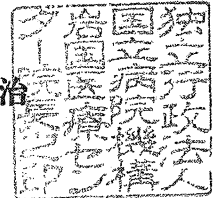 独立行政法人
国立病院機構
岩国医療セン
ター院長之印
治